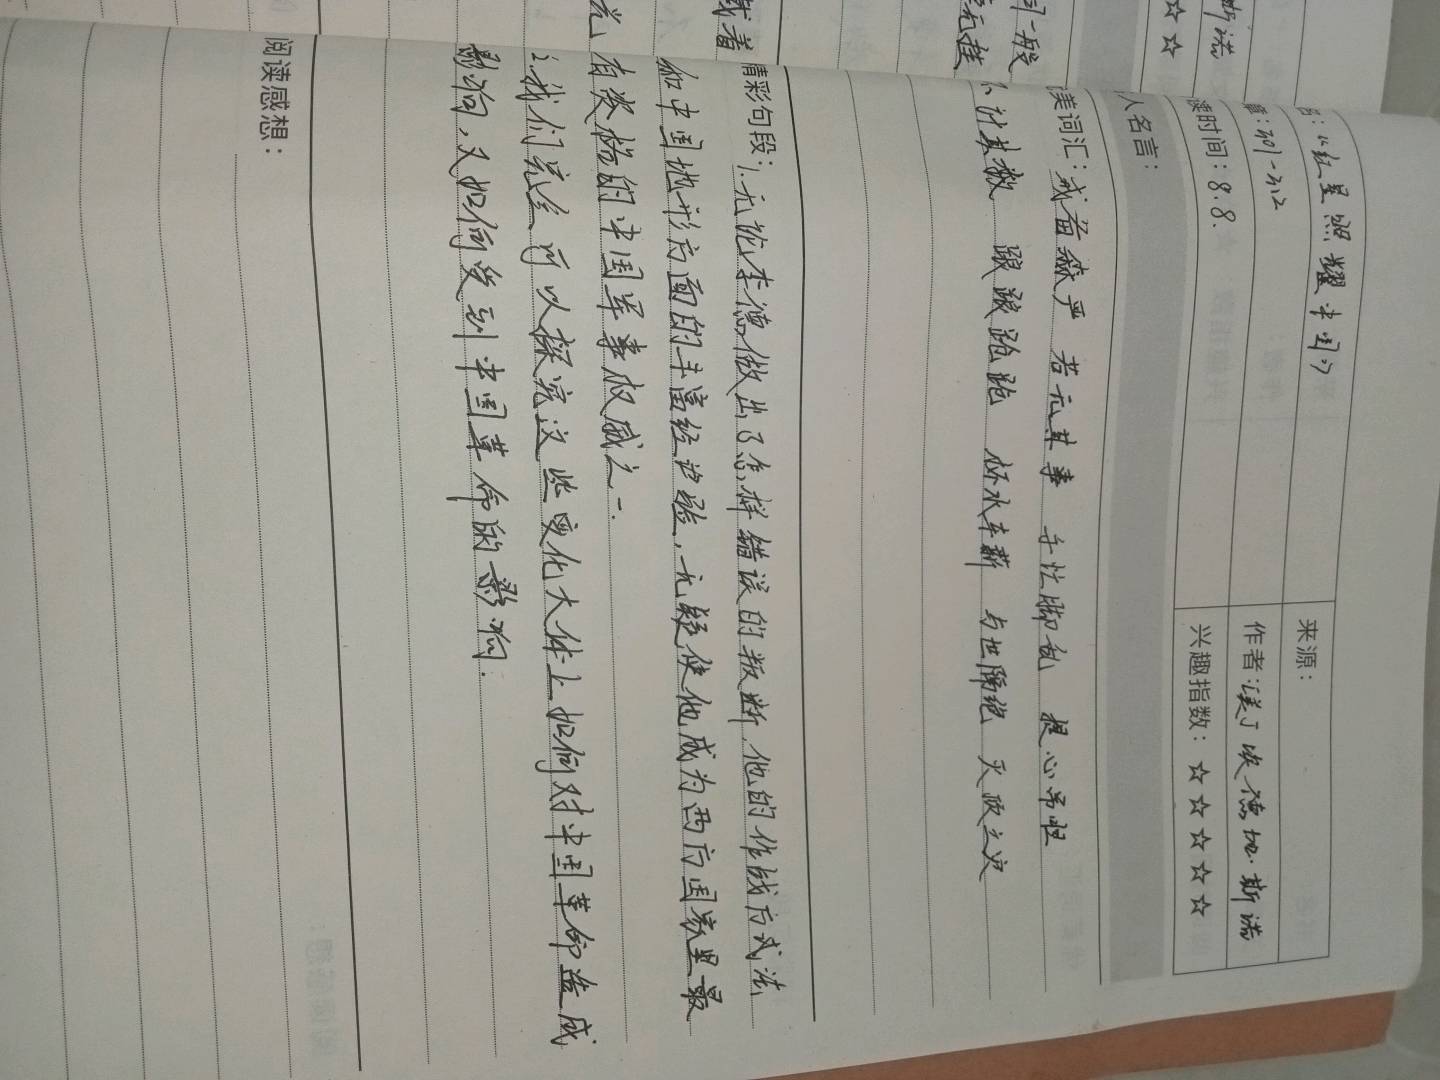 《红星照耀中国》
来源：
301-312
作者：[美]埃德加·斯诺
读时间：8.8.
兴趣指数：☆☆☆☆☆
人名言：
美词汇：戒备森严 若无其事 手忙脚乱 提心吊胆
不计其数 踉踉跄跄 杯水车薪 与世隔绝 灭顶之灾
精彩句段：1.无论李德做出了怎样错误的判断，他的作战方式法
和中国地形方面的丰富经验，无疑使他成为西方国家里最
有资格的中国军事权威之一.
2.我们完全可以探究这些变化大体上如何对中国革命造成
影响，又如何受到中国革命的影响.
阅读感想：
同一般
斯诺
☆☆